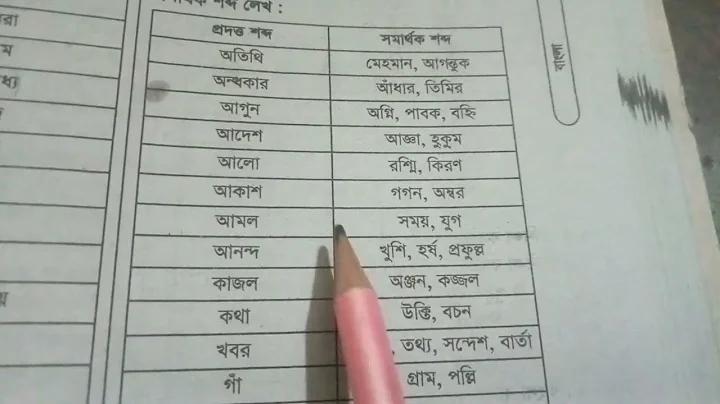 শব্দ লেখ :
প্রদত্ত শব্দ সমার্থক শব্দ
অতিথি মেহমান, আগন্তুক
অন্ধকার আঁধার, তিমির
আগুন অগ্নি, পাবক, বহ্নি
আদেশ আজ্ঞা, হুকুম
আলো রশ্মি, কিরণ
আকাশ গগন, অম্বর
আমল সময়, যুগ
আনন্দ খুশি, হর্ষ, প্রফুল্ল
কাজল অঞ্জন, কজ্জল
কথা উক্তি, বচন
খবর , তথ্য, সন্দেশ, বার্তা
গাঁ গ্রাম, পল্লি
বাংলা